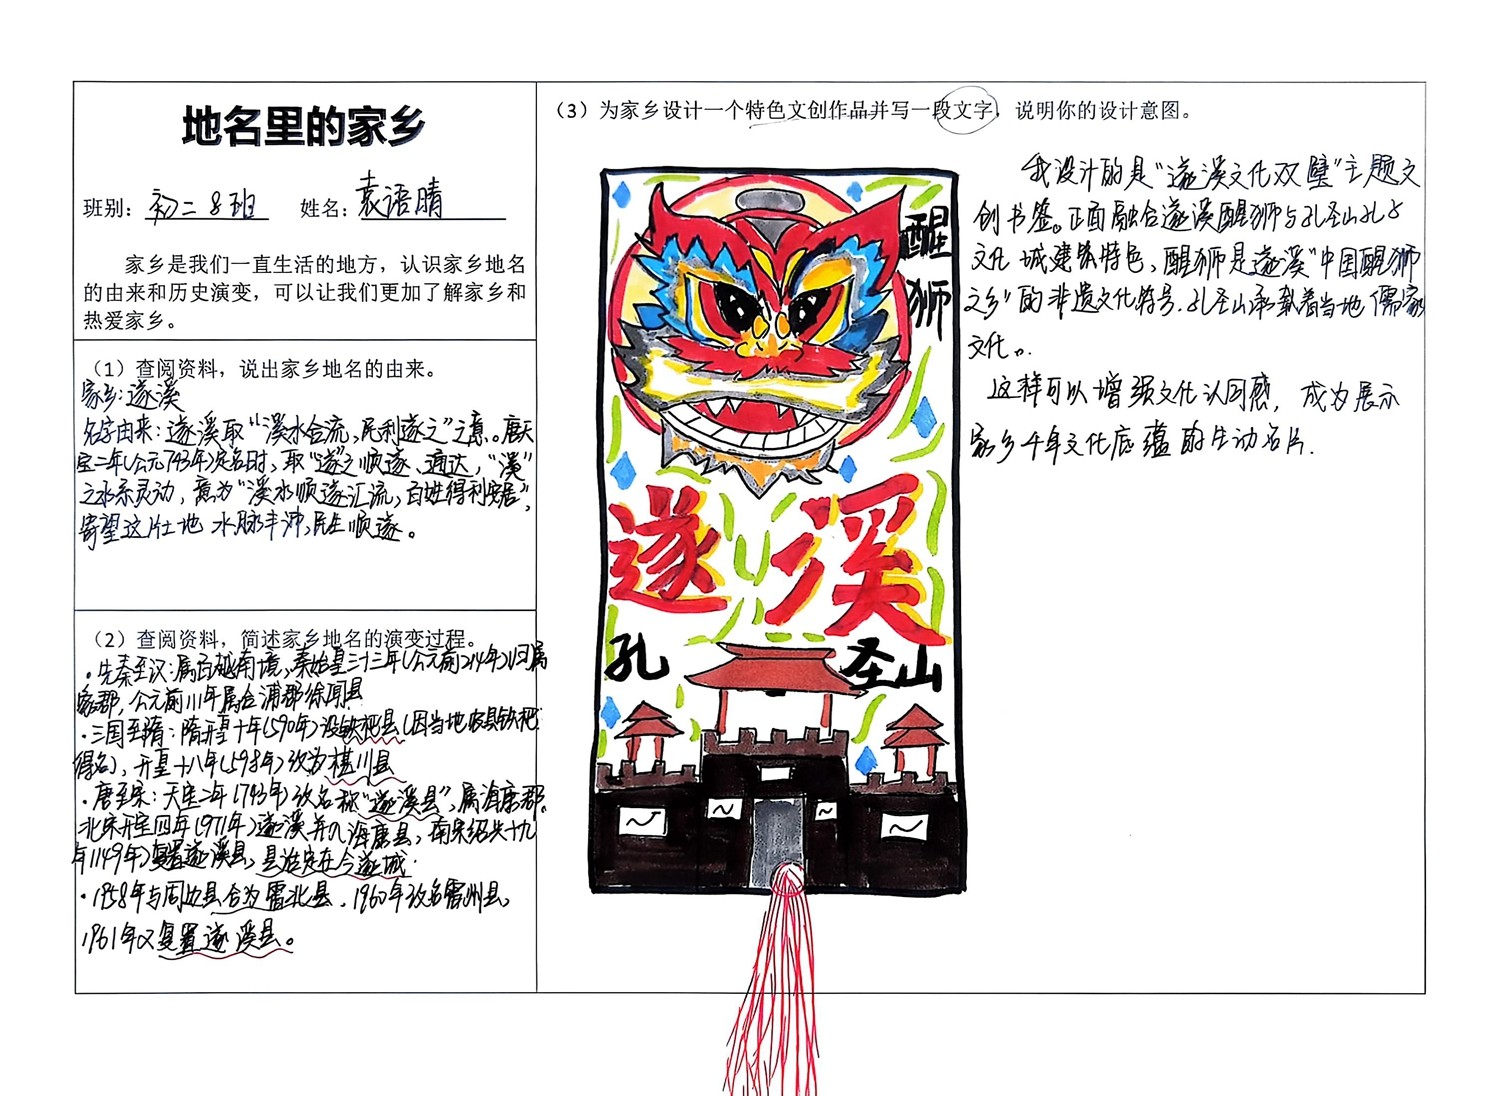 地名里的家乡
班别：初二8班 姓名：袁语晴
家乡是我们一直生活的地方，认识家乡地名
的由来和历史演变，可以让我们更加了解家乡和
热爱家乡。
（1）查阅资料，说出家乡地名的由来。
家乡：遂溪
名字由来：遂溪取“溪水合流，民利遂之”之意。唐天
宝二年(公元743年)定名时，取“遂”之顺遂、通达，“溪”
之水系灵动，意为“溪水顺遂汇流，百姓得利安居”，
寄望这片土地水脉丰沛，民生顺遂。
（2）查阅资料，简述家乡地名的演变过程。
·先秦至汉：属百越南境，秦始皇三十三年(公元前214年)归属
象郡，公元前111年属合浦郡徐闻县
·三国至隋：隋开皇十年(590年)设铁杷县(因当地农具铁杷
得名)，开皇十八年(598年)改为椹川县
·唐至宋：天宝二年(743年)改名称“遂溪县”，属海康郡。
北宋开宝四年(971年)遂溪并入海康县，南宋绍兴十九
年(1149年)复置遂溪县，县治定在今遂城.
·1958年与周边县合为雷北县，1960年改名雷州县。
1961年又复置遂溪县。
（3）为家乡设计一个特色文创作品并写一段文字，说明你的设计意图。
醒狮
遂溪
孔圣山
我设计的是“遂溪文化双璧”主题文
创书签。正面融合遂溪醒狮与孔圣山孔子
文化城建筑特色，醒狮是遂溪“中国醒狮
之乡”的非遗文化符号.孔圣山承载着当地儒家
文化。.
这样可以增强文化认同感，成为展示
家乡千年文化底蕴的生动名片.